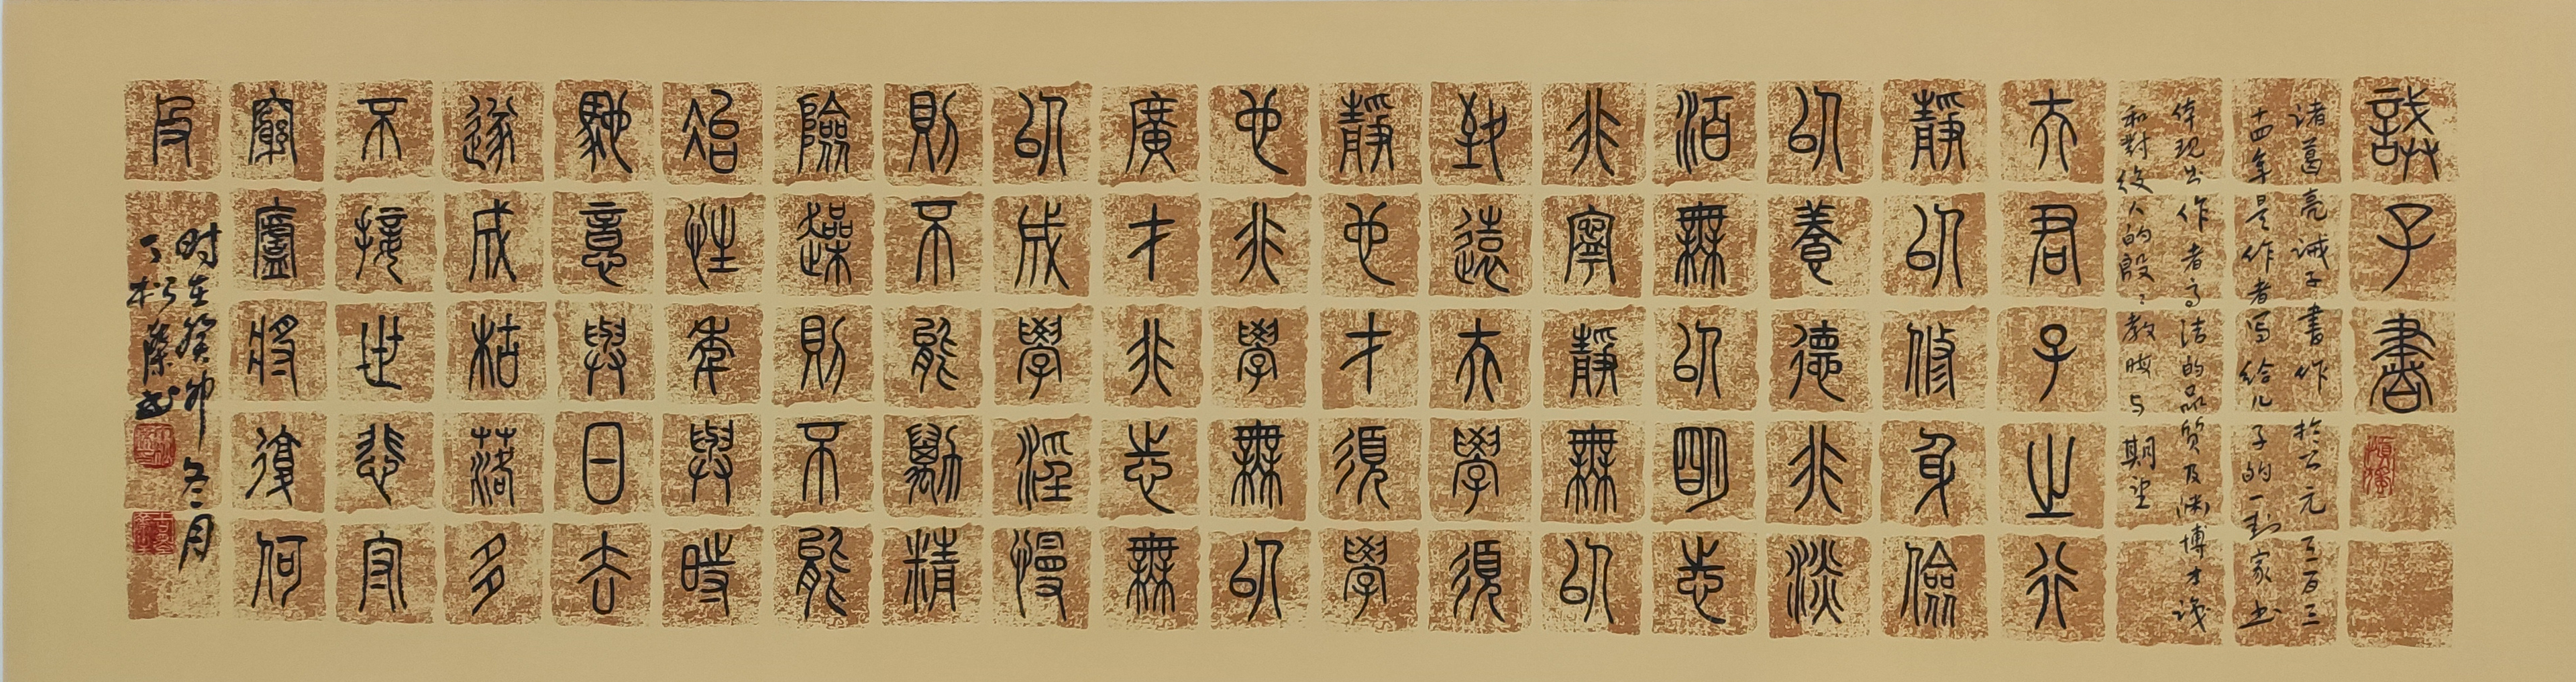 誡子書
诸葛亮诫子書作於公元二百三
十四年是作者写给儿子的一封家书
体现出作者高洁的品质及渊博才识
和對後人的殷〻教晦与期望
夫君子之行
靜以修身儉
以養德非淡
泊無以明志
非寧靜無以
致遠夫學須
靜也才須學
也非學無以
廣才非志無
以成學淫慢
則不能勵精
險躁則不能
冶性年與時
馳意與日去
遂成枯落多
不接世悲守
窮廬將復何
及
时在癸卯冬月
丁松書